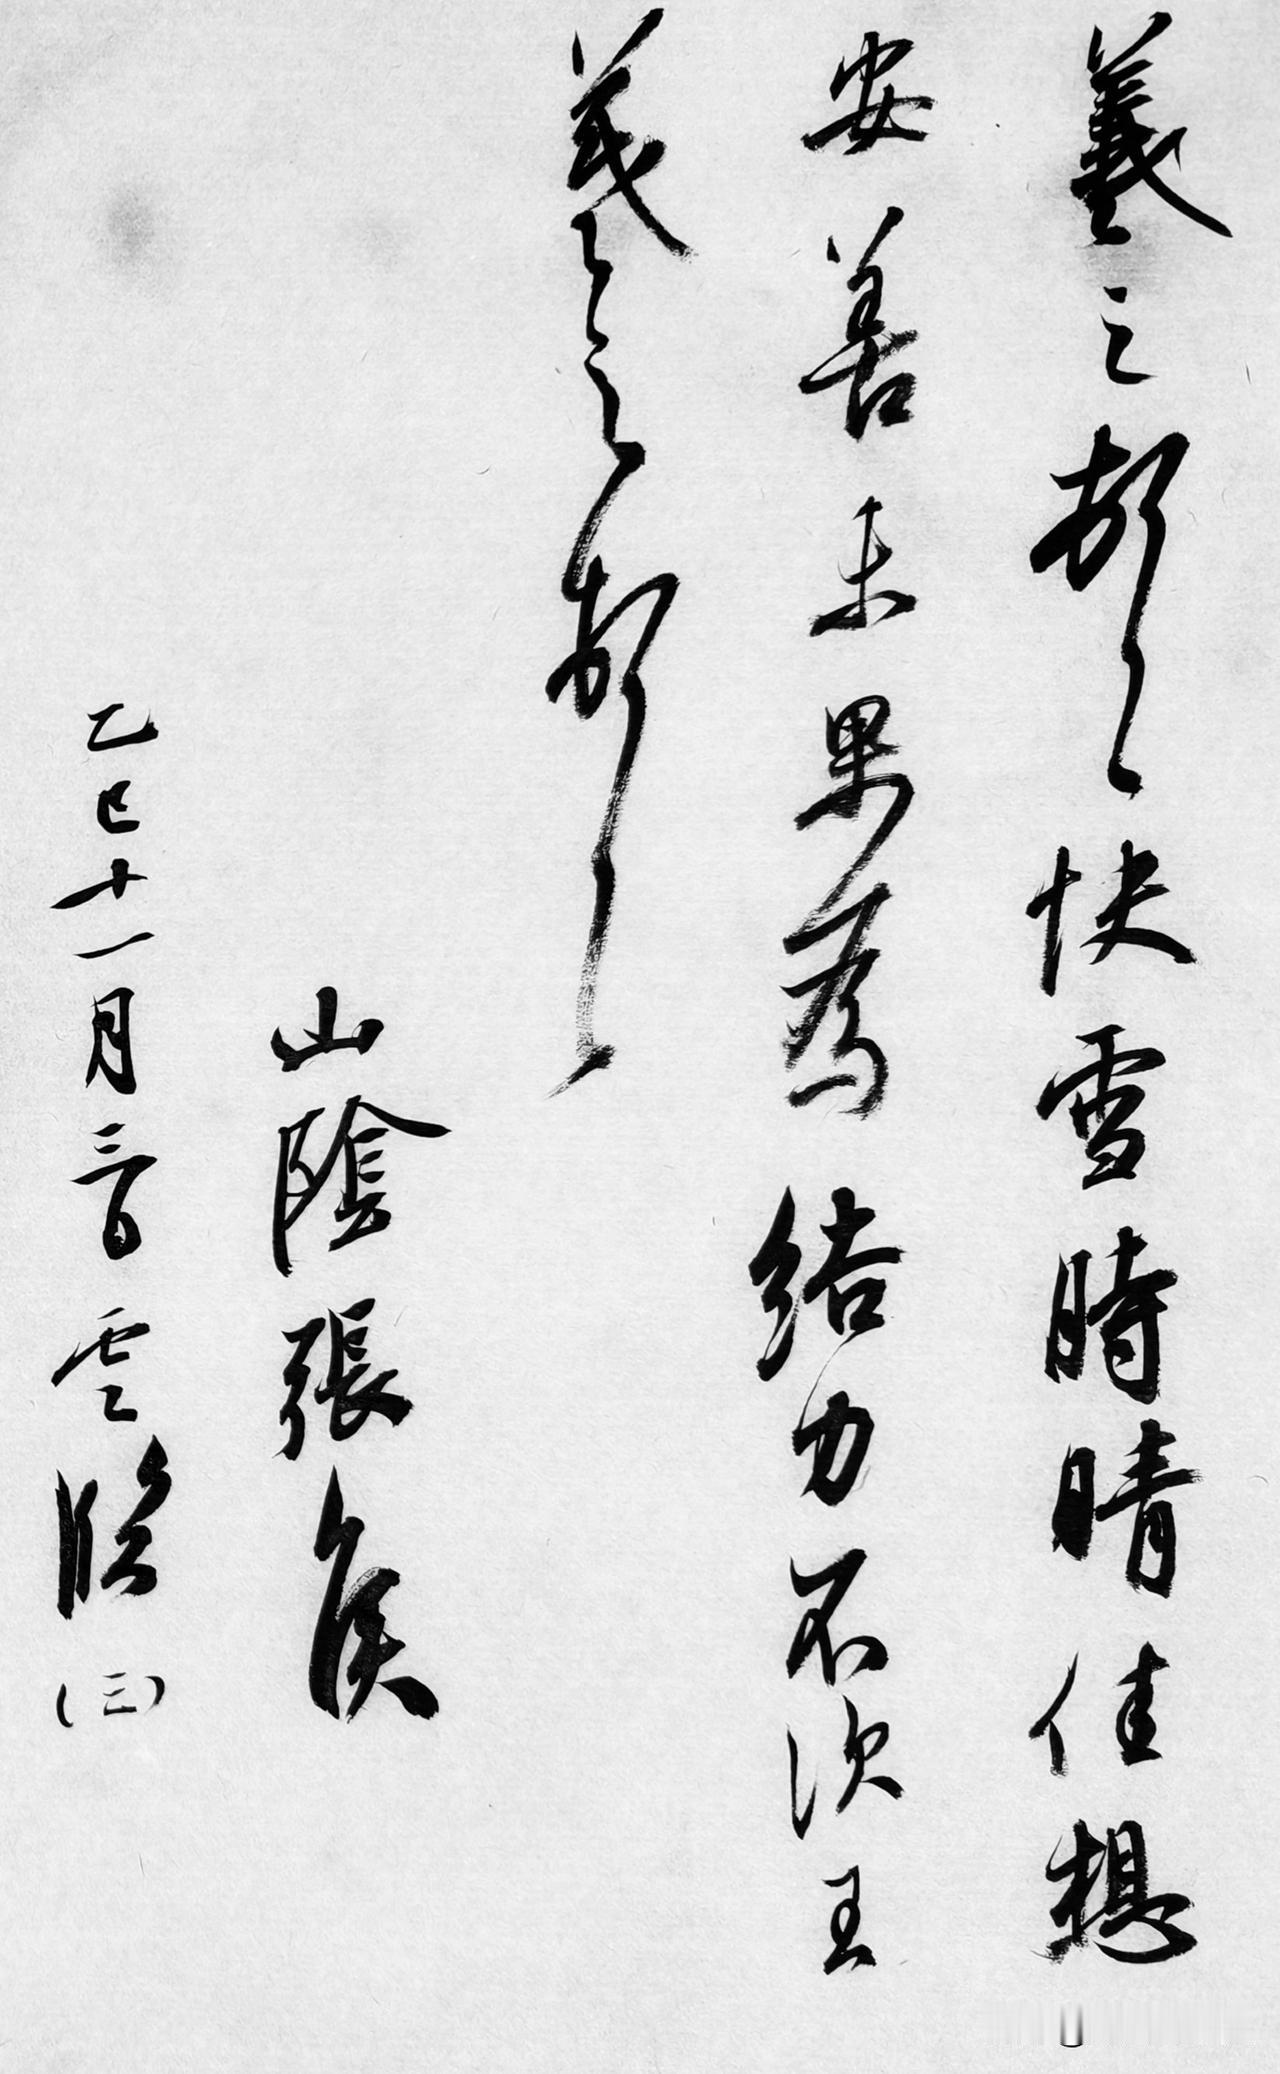 羲之頓首快雪時晴佳想
安善未果為結力不次王
羲之頓首
山陰張侯
乙巳十一月三日雲臨(三)